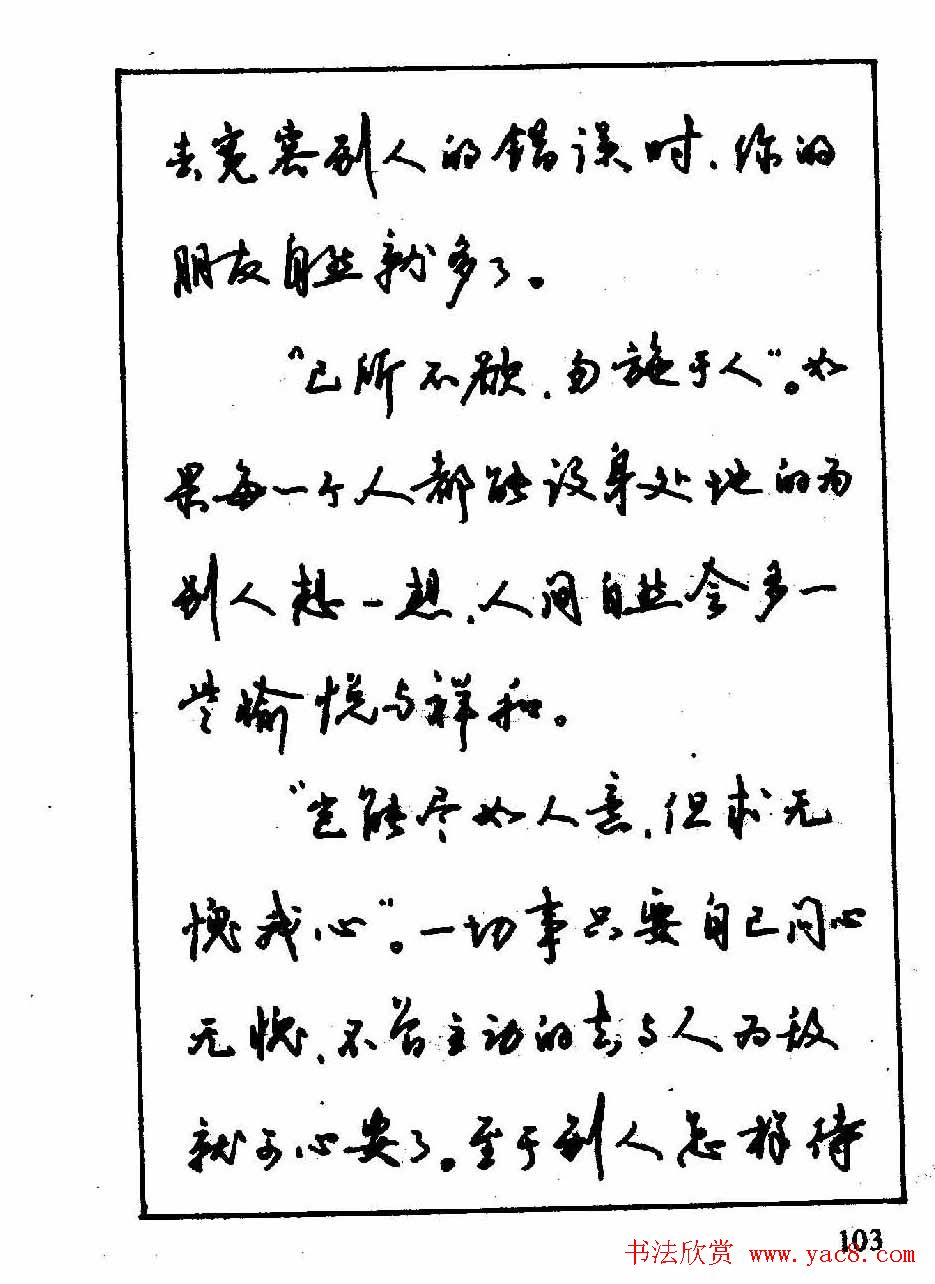 去宽容别人的错误时，你的
朋友自然就多了。
“己所不欲，勿施于人”。如
果每一个人都能设身处地的为
别人想一想，人间自然会多一
些愉悦与祥和。
“岂能尽如人意，但求无
愧我心”。一切事只要自己问心
无愧，不曾主动的去与人为敌
就可心安了。至于别人怎样待
103
书法欣赏 www.yac8.com